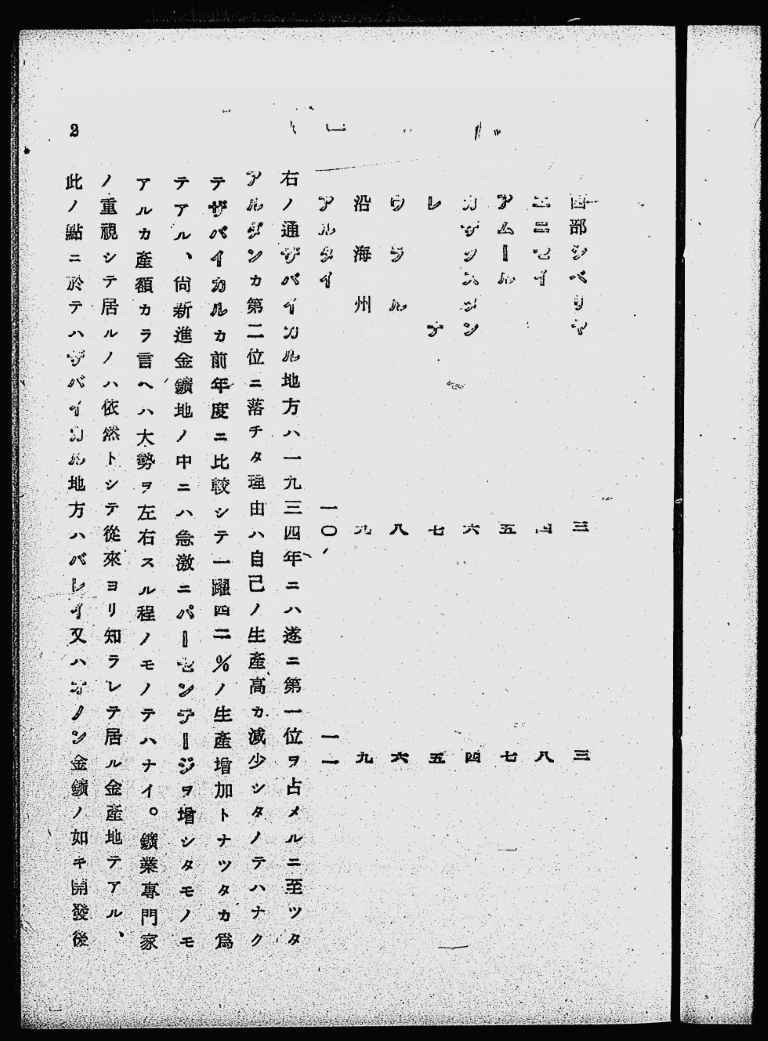 西部シベリヤ 三 三
エニセイ 四 八
アムール 五 七
カザックスタン 六 四
レナ 七 五
ウラル 八 六
沿海州 九 九
アルタイ 一〇 一一
右ノ通ザバイカル地方ハ一九三四年ニハ遂ニ第一位ヲ占メルニ至ツタ
アルダンカ第二位ニ落チタ理由ハ自己ノ生産高カ減少シタノテハナク
テザバイカルカ前年度ニ比較シテ一躍四二%ノ生産増加トナツタカ為
テアル、尙新進金鑛地ノ中ニハ急激ニパーセンテージヲ増シタモノモ
アルカ産額カラ言ヘハ大勢ヲ左右スル程ノモノテハナイ。鑛業專門家
ノ重視シテ居ルノハ依然トシテ從來ヨリ知ラレテ居ル金産地テアル、
此ノ點ニ於テハザバイカル地方ハバレイ又ハオノン金鑛ノ如キ開發後
2